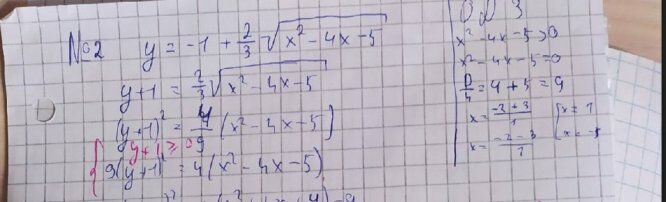 №2 y = -1 + 2/3 √(x² - 4x - 5)
y+1 = 2/3 √(x² - 4x - 5)
(y+1)² = 4/9 (x² - 4x - 5)
y+1 ≥ 0
9(y+1)² = 4(x² - 4x - 5)
ОДЗ
x² - 4x - 5 ≥ 0
x² - 4x - 5 = 0
D/4 = 4 + 5 = 9
x = (-2+3)/1
x = (-2-3)/1